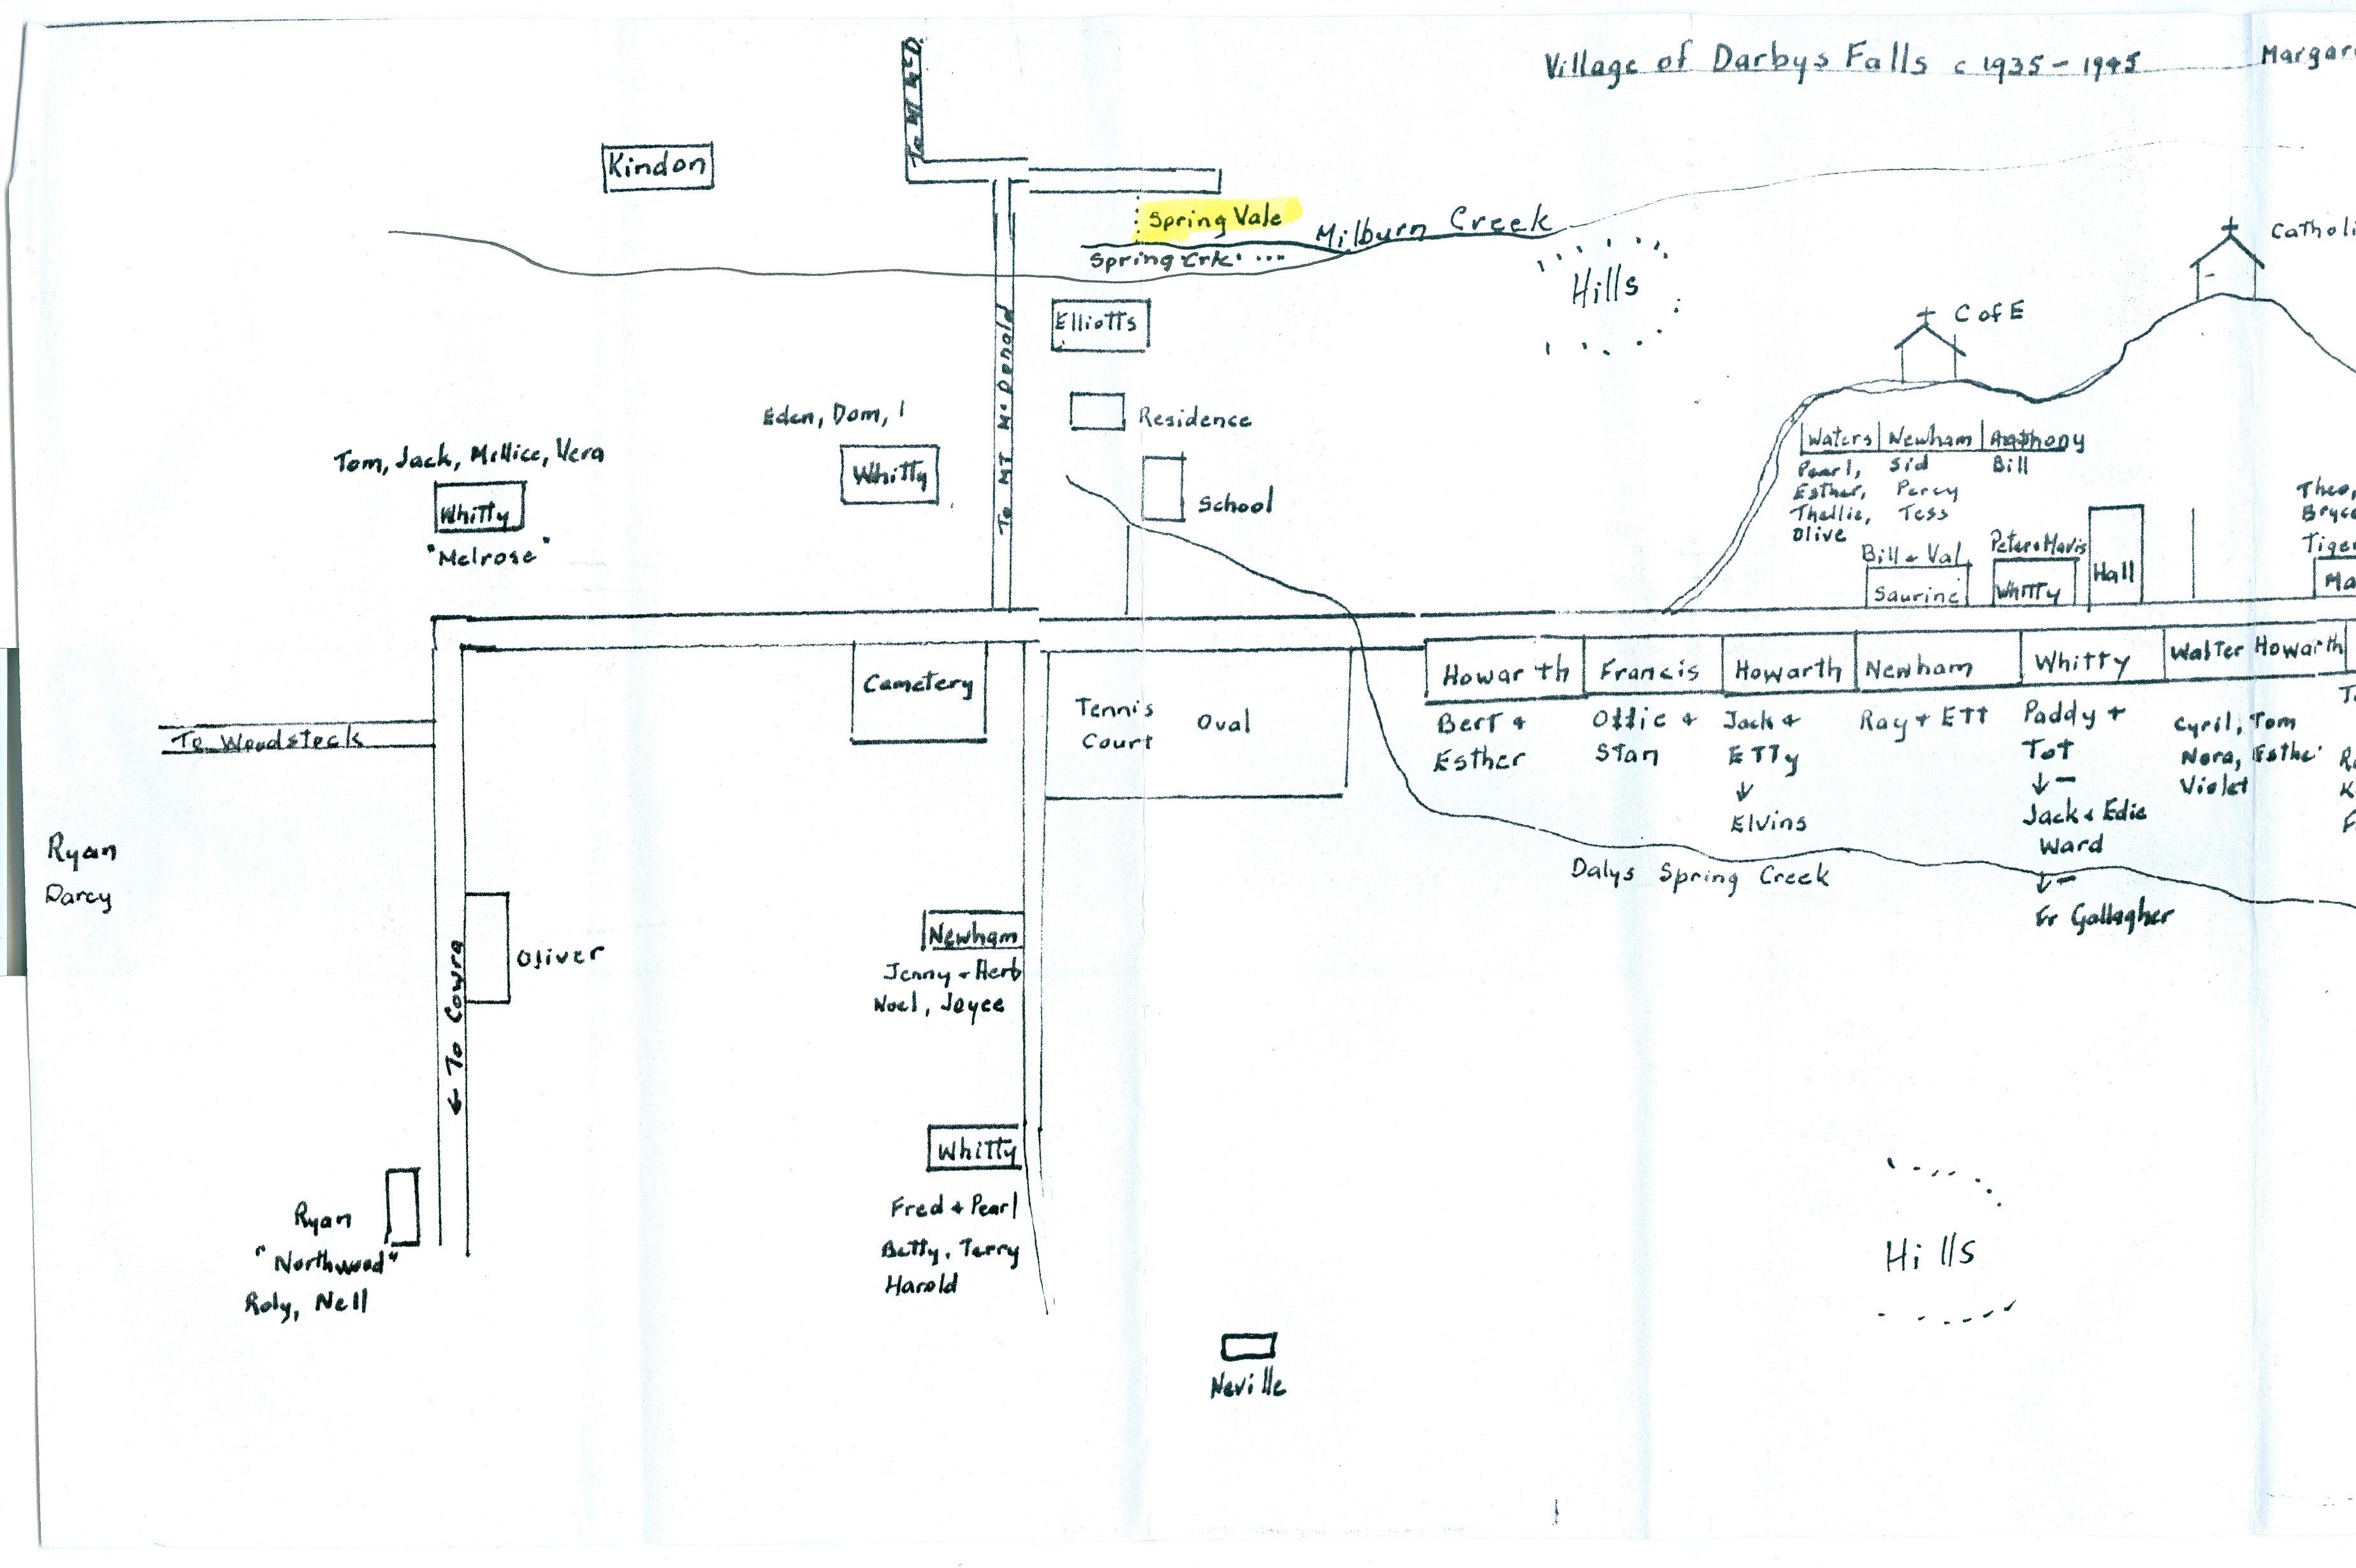 Village of Darbys Falls c 1935 - 1945
Margar
To Mt McD.
Kindon
Spring Vale
Milburn Creek
Spring Crk.
Hills
Catholi
C of E
Elliotts
To MT McDonald
Residence
Eden, Dom,
Whitty
School
Tom, Jack, Millice, Vera
Whitty
"Melrose"
Waters
Pearl,
Esther,
Thellie,
Olive
Newham
Sid
Percy
Tess
Anthony
Bill
Bill + Val
Saurine
Peter + Mavis
Whitty
Hall
Theo,
Bryce
Tiger
Ma
Cemetery
Tennis
Court
Oval
Howarth
Bert +
Esther
Francis
Ollie +
Stan
Howarth
Jack +
ETTy
↓
Elvins
Newham
Ray + ETT
Whitty
Paddy +
Tot
↓
Jack + Edie
Ward
↓
Fr Gallagher
Walter Howarth
Cyril, Tom
Nora, Esthe
Violet
To Woodstock
Ryan
Darcy
Dalys Spring Creek
← To Cowra
Oliver
Newham
Jenny + Herb
Noel, Joyce
Whitty
Fred + Pearl
Betty, Terry
Harold
Ryan
"Northwood"
Roly, Nell
Hills
Neville